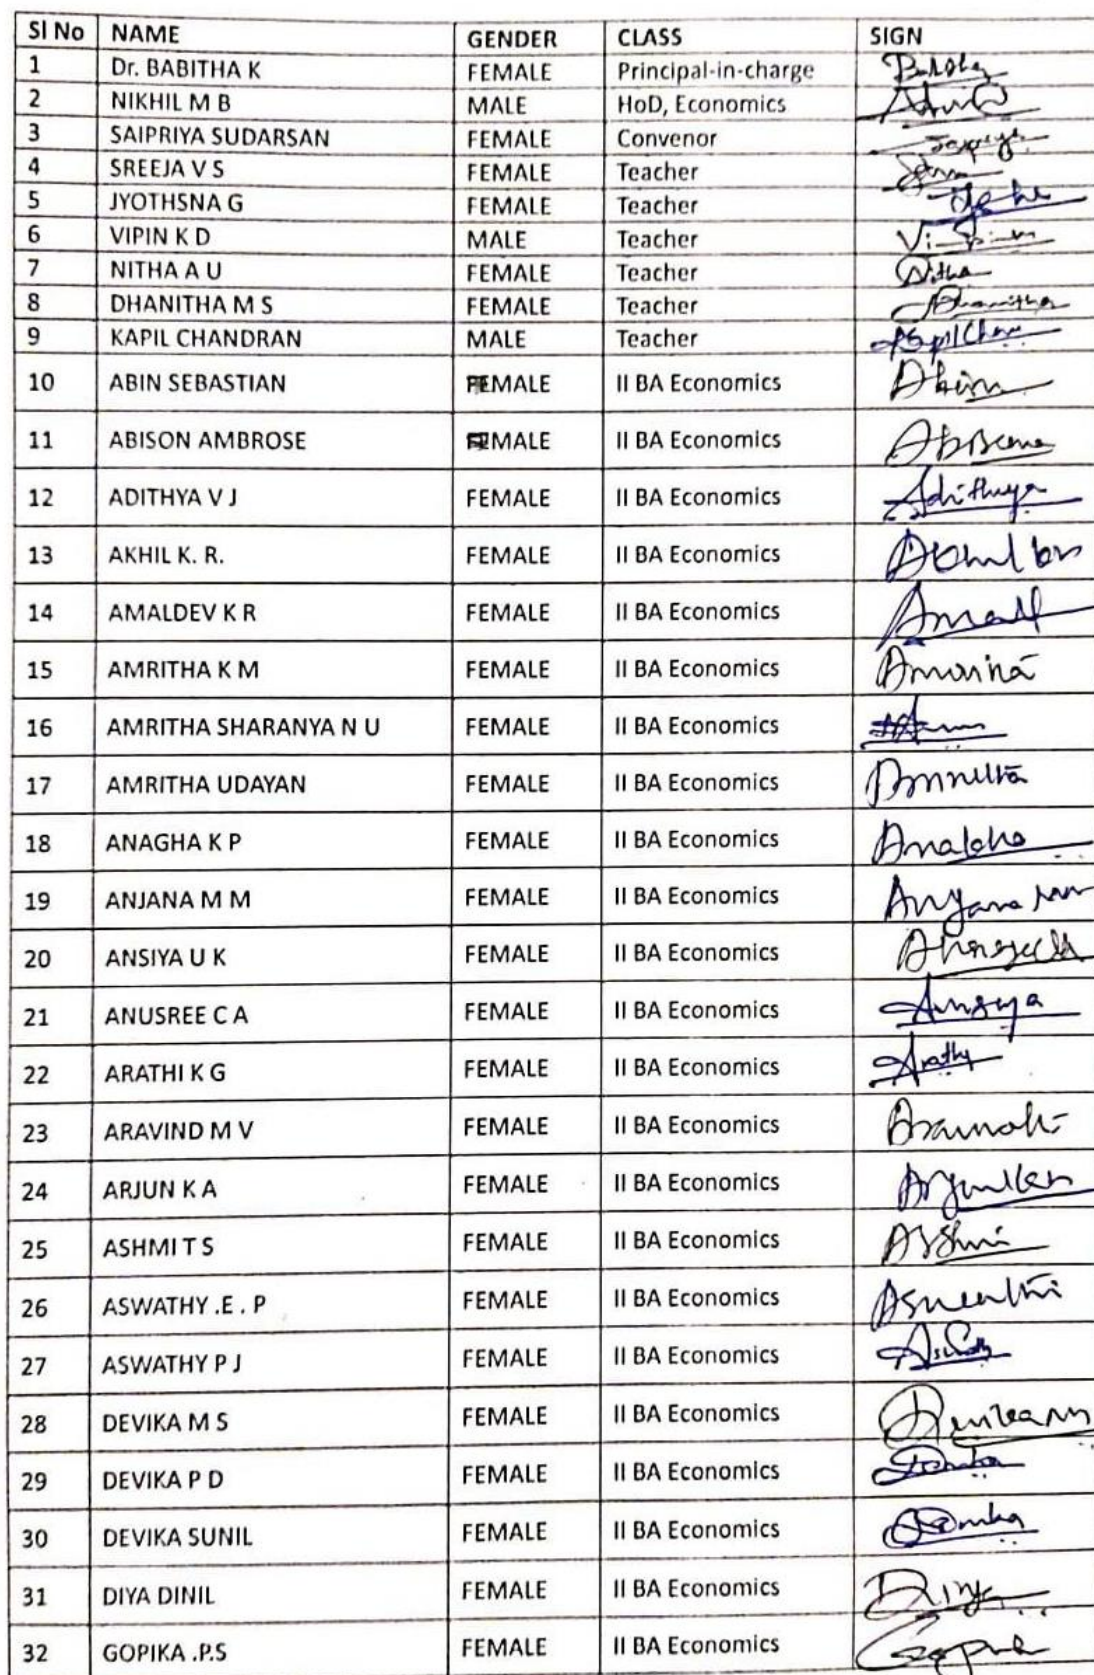 Sl No NAME GENDER CLASS SIGN
1 Dr. BABITHA K FEMALE Principal-in-charge
2 NIKHIL M B MALE HoD, Economics
3 SAIPRIYA SUDARSAN FEMALE Convenor
4 SREEJA V S FEMALE Teacher
5 JYOTHSNA G FEMALE Teacher
6 VIPIN K D MALE Teacher
7 NITHA A U FEMALE Teacher Nitha
8 DHANITHA M S FEMALE Teacher Dhanitha
9 KAPIL CHANDRAN MALE Teacher
10 ABIN SEBASTIAN MALE II BA Economics Abin
11 ABISON AMBROSE MALE II BA Economics
12 ADITHYA V J FEMALE II BA Economics Adithya
13 AKHIL K. R. FEMALE II BA Economics
14 AMALDEV K R FEMALE II BA Economics
15 AMRITHA K M FEMALE II BA Economics
16 AMRITHA SHARANYA N U FEMALE II BA Economics
17 AMRITHA UDAYAN FEMALE II BA Economics
18 ANAGHA K P FEMALE II BA Economics
19 ANJANA M M FEMALE II BA Economics
20 ANSIYA U K FEMALE II BA Economics
21 ANUSREE C A FEMALE II BA Economics
22 ARATHI K G FEMALE II BA Economics Arathy
23 ARAVIND M V FEMALE II BA Economics
24 ARJUN K A FEMALE II BA Economics
25 ASHMI T S FEMALE II BA Economics
26 ASWATHY .E . P FEMALE II BA Economics
27 ASWATHY P J FEMALE II BA Economics
28 DEVIKA M S FEMALE II BA Economics
29 DEVIKA P D FEMALE II BA Economics
30 DEVIKA SUNIL FEMALE II BA Economics
31 DIYA DINIL FEMALE II BA Economics
32 GOPIKA .P.S FEMALE II BA Economics